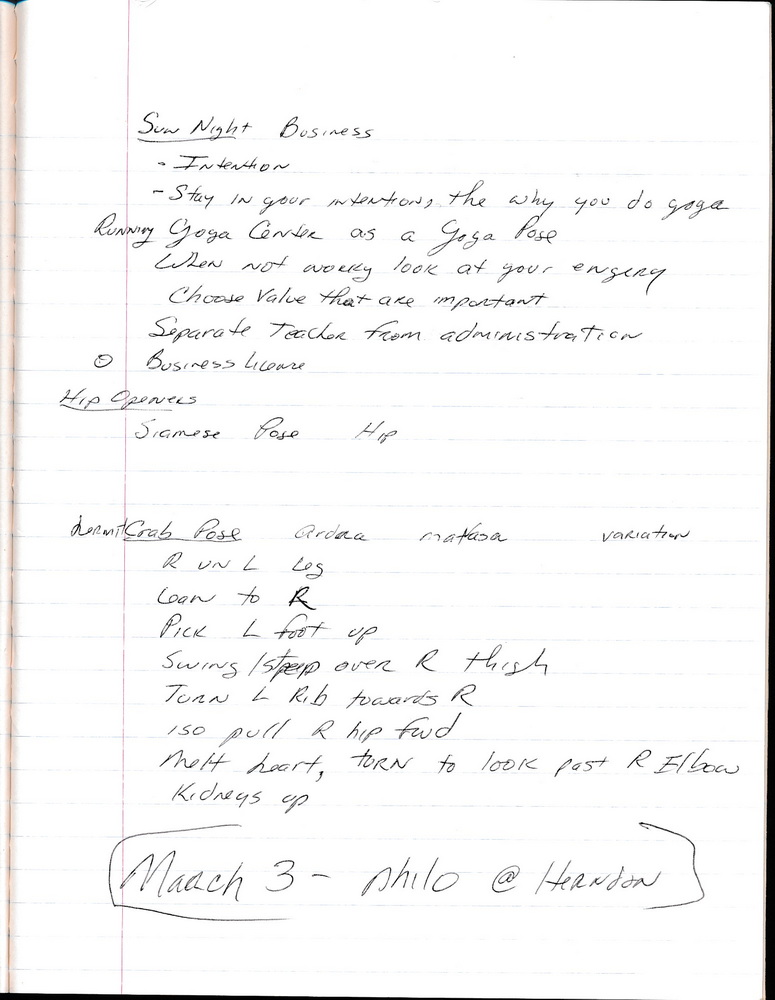 Sun Night Business
- Intention
- Stay in your intentions, the why you do yoga
Running Yoga Center as a Yoga Pose
When not worky look at your engery
Choose Value that are important
Separate Teacher from administration
Business License
Hip Openers
Siamese Pose Hip
Hermit Crab Pose ardha matasa variation
R on L Leg
Lean to R
Pick L foot up
Swing / step over R thigh
Turn L Rib towards R
iso pull R hip fwd
Melt heart, turn to look past R Elbow
Kidneys up
March 3 - philo @ Herndon